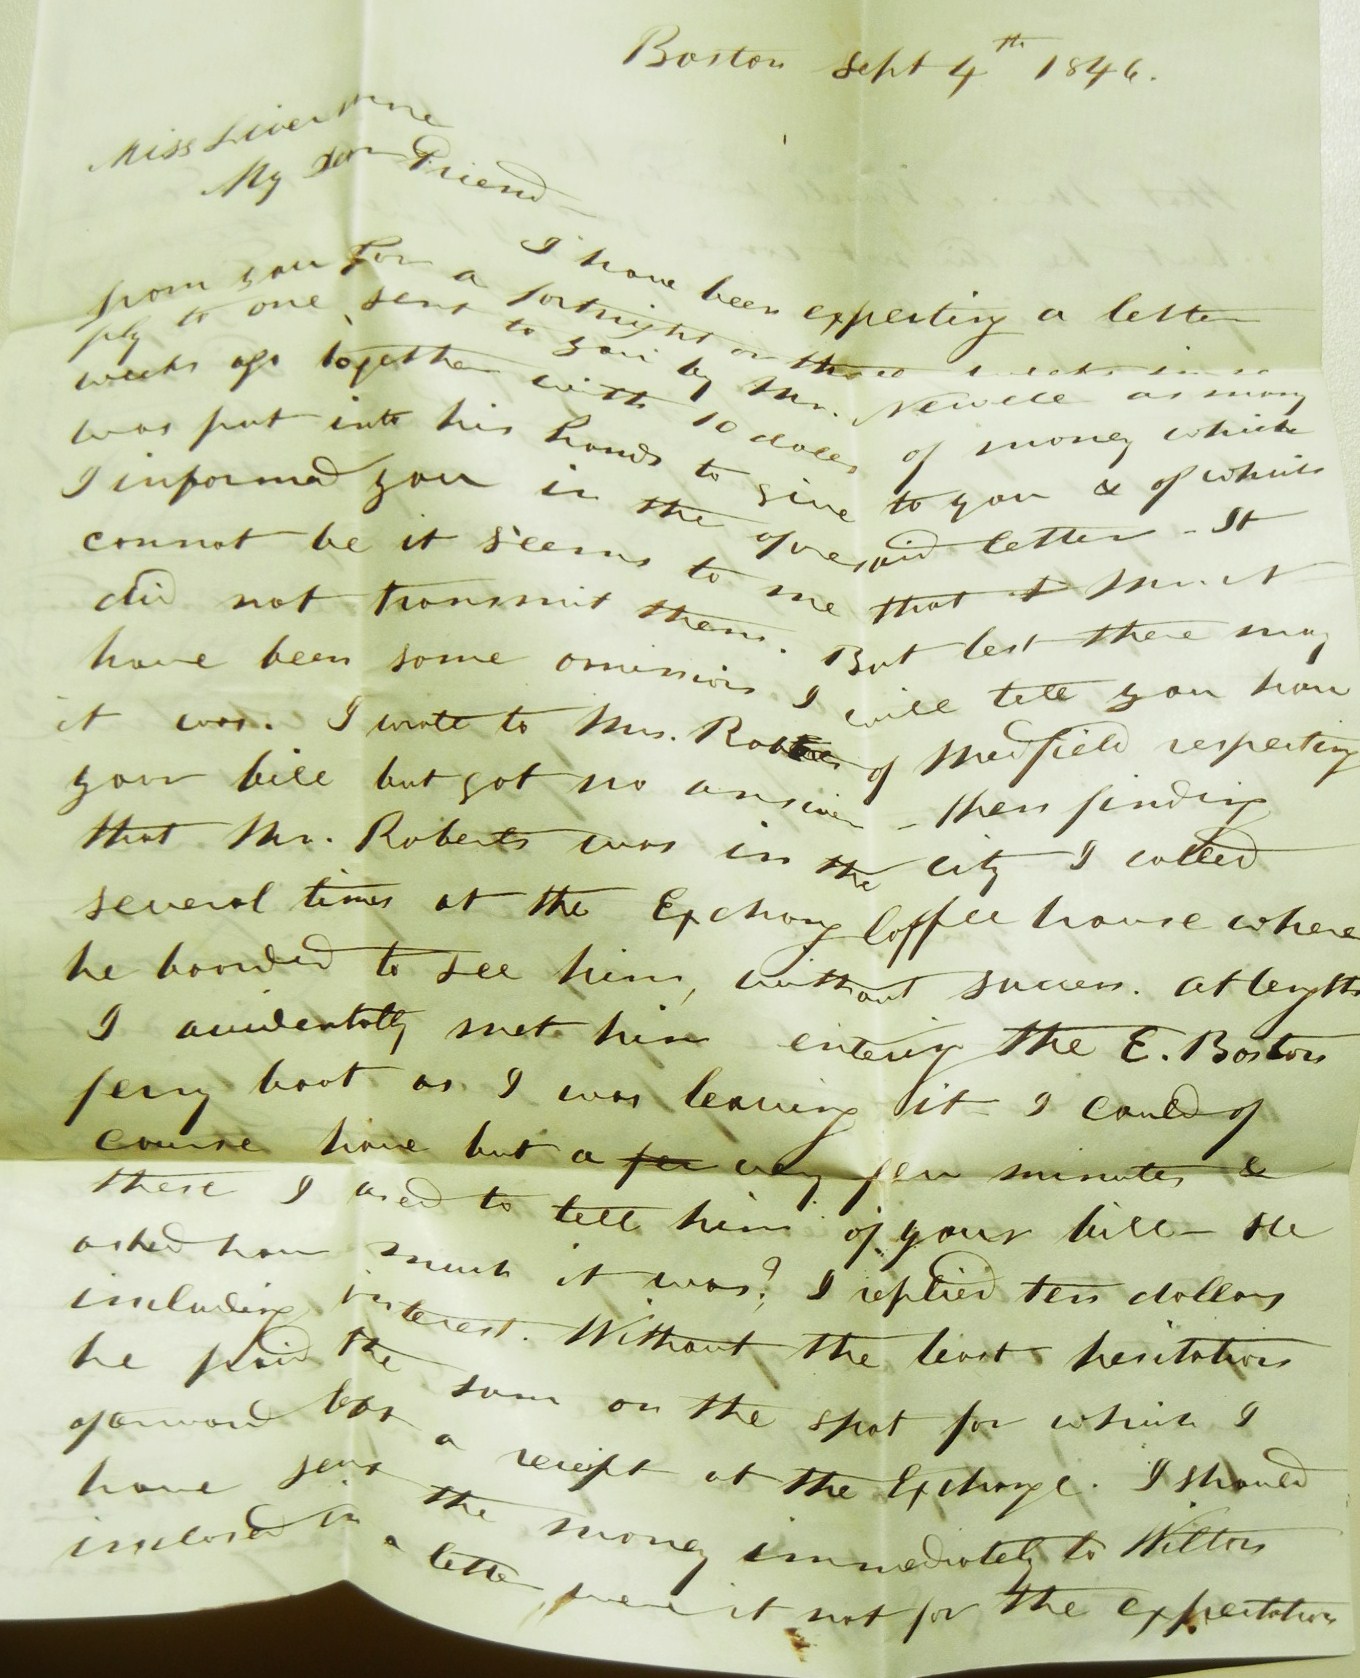 Boston Sept 4th 1846.
Miss Livermore
My dear Friend
I have been expecting a letter
from you for a fortnight or three weeks in re
ply to one sent to you by Mr. Newell as many
weeks ago together with 10 dolls of money which
was put into his hands to give to you & of which
I informed you in the aforesaid letter - It
cannot be it seems to me that I
did not transmit them. But lest there may
have been some omission I will tell you how
it was. I wrote to Mrs. of Medfield respecting
your bill but got no answer - then finding
that Mr. Roberts was in the city I called
several times at the Exchang Coffee house where
he boarded to see him, without success. at length
I accidentally met him entering the E. Boston
ferry boat as I was leaving it I could of
course have but a few very few minutes &
these I used to tell him of your bill - He
asked how much it was? I replied ten dollars
including interest. Without the least hesitation
he paid the sum on the spot for which I
afterward left a reciept at the Exchange. I should
have sent the money immediately to Wilton
inclosed in a letter were it not for the expectation